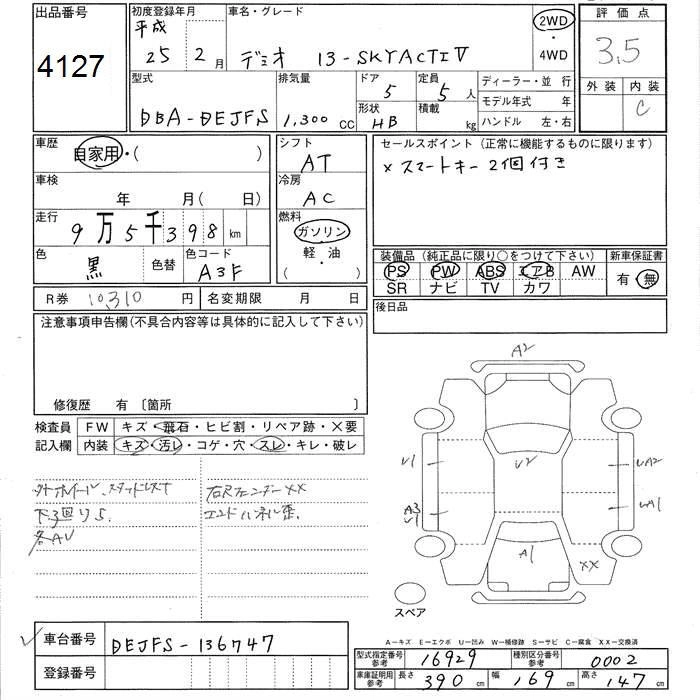 出品番号
4127
初度登録年月
平成
25 2月
車名・グレード
デミオ 13-SKYACTIV
2WD
・
4WD
評価点
3.5
外装 内装
C
型式
DBA-DEJFS
排気量
1,300 cc
ドア
5
定員
5 人
形状
HB
積載
kg
ディーラー・並 行
モデル年式 年
ハンドル 左・右
車歴
自家用・( )
車検
年 月(日)
走行
9万5千398 km
色
黒
色替
色コード
A3F
シフト
AT
冷房
AC
燃料
ガソリン
軽・油
( )
セールスポイント (正常に機能するものに限ります)
×スマートキー2個付き
装備品 (純正品に限り○をつけて下さい)
PS PW ABS エアB AW
SR ナビ TV カワ
新車保証書
有・無
R券 10,310 円
名変期限 月 日
後日品
注意事項申告欄(不具合内容等は具体的に記入して下さい)
修復歴 有 〔箇所 〕
検査員
記入欄
FW キズ・飛石・ヒビ割・リペア跡・×要
内装 キズ・汚レ・コゲ・穴・スレ・キレ・破レ
下廻りS
各AU
右Rフェンダーxx
A2
U1
U2
UA2
A3
U1
UA1
A1
XX
スペア
車台番号 DEJFS-136747
登録番号
A―キズ E―エクボ U―凹み W―補修跡 S―サビ C―腐食 XX―交換済
型式指定番号
参考
16929
種別区分番号
参考
0002
車庫証明用
参考
長さ 390 cm
幅 169 cm
高さ 147 cm